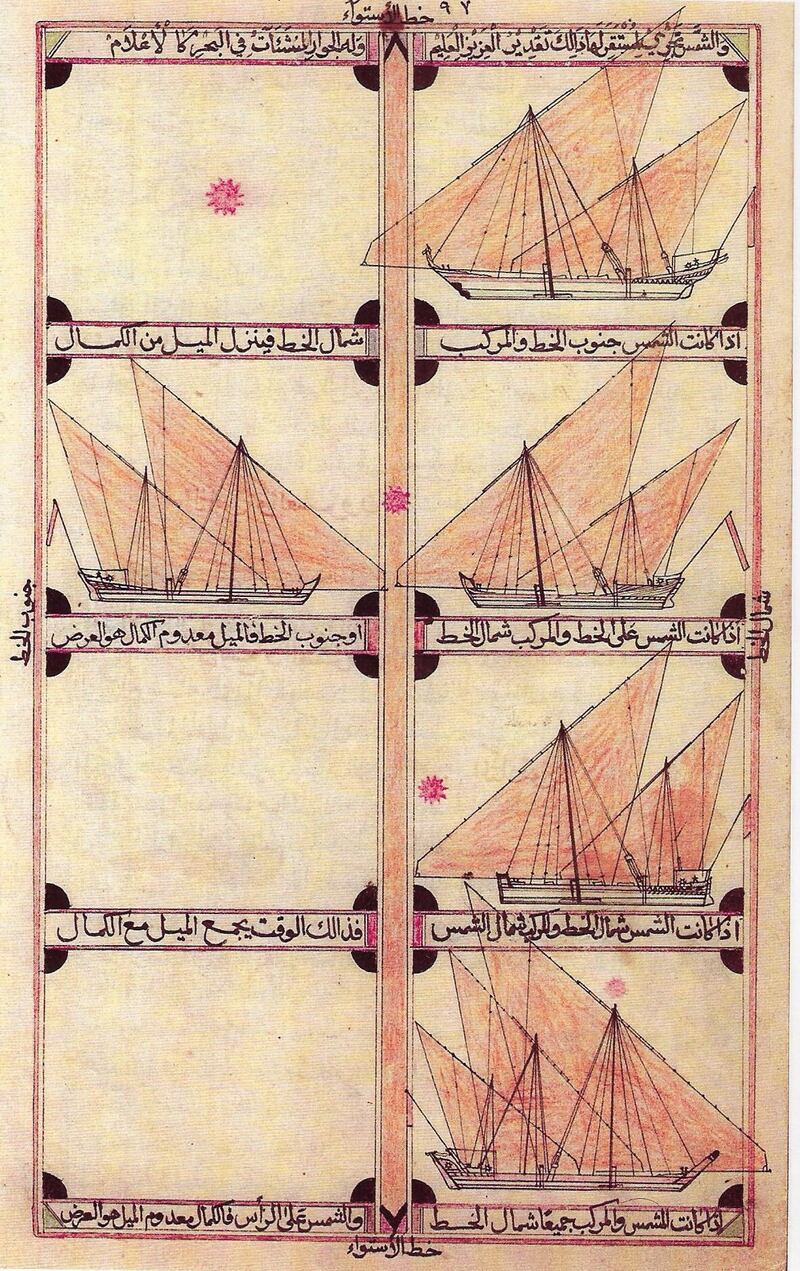 ٩٧
خط الأستواء
والشمس تجري لمستقر لها ذالك تقدير العزيز العليم
وله الجوار المنشئات في البحر كالأعلام
اذا كانت الشمس جنوب الخط والمركب
شمال الخط فينزل الميل من الكمال
شمال الخط
جنوب الخط
اذا كانت الشمس على الخط والمركب شمال الخط
او جنوب الخط فالميل معدوم الكمال هو العرض
اذا كانت الشمس شمال الخط والمركب شمال الشمس
فذالك الوقت يجمع الميل مع الكمال
اذا كانت الشمس والمركب جميعًا شمال الخط
والشمس على الرأس فالكمال معدوم الميل هو العرض
خط الأستواء